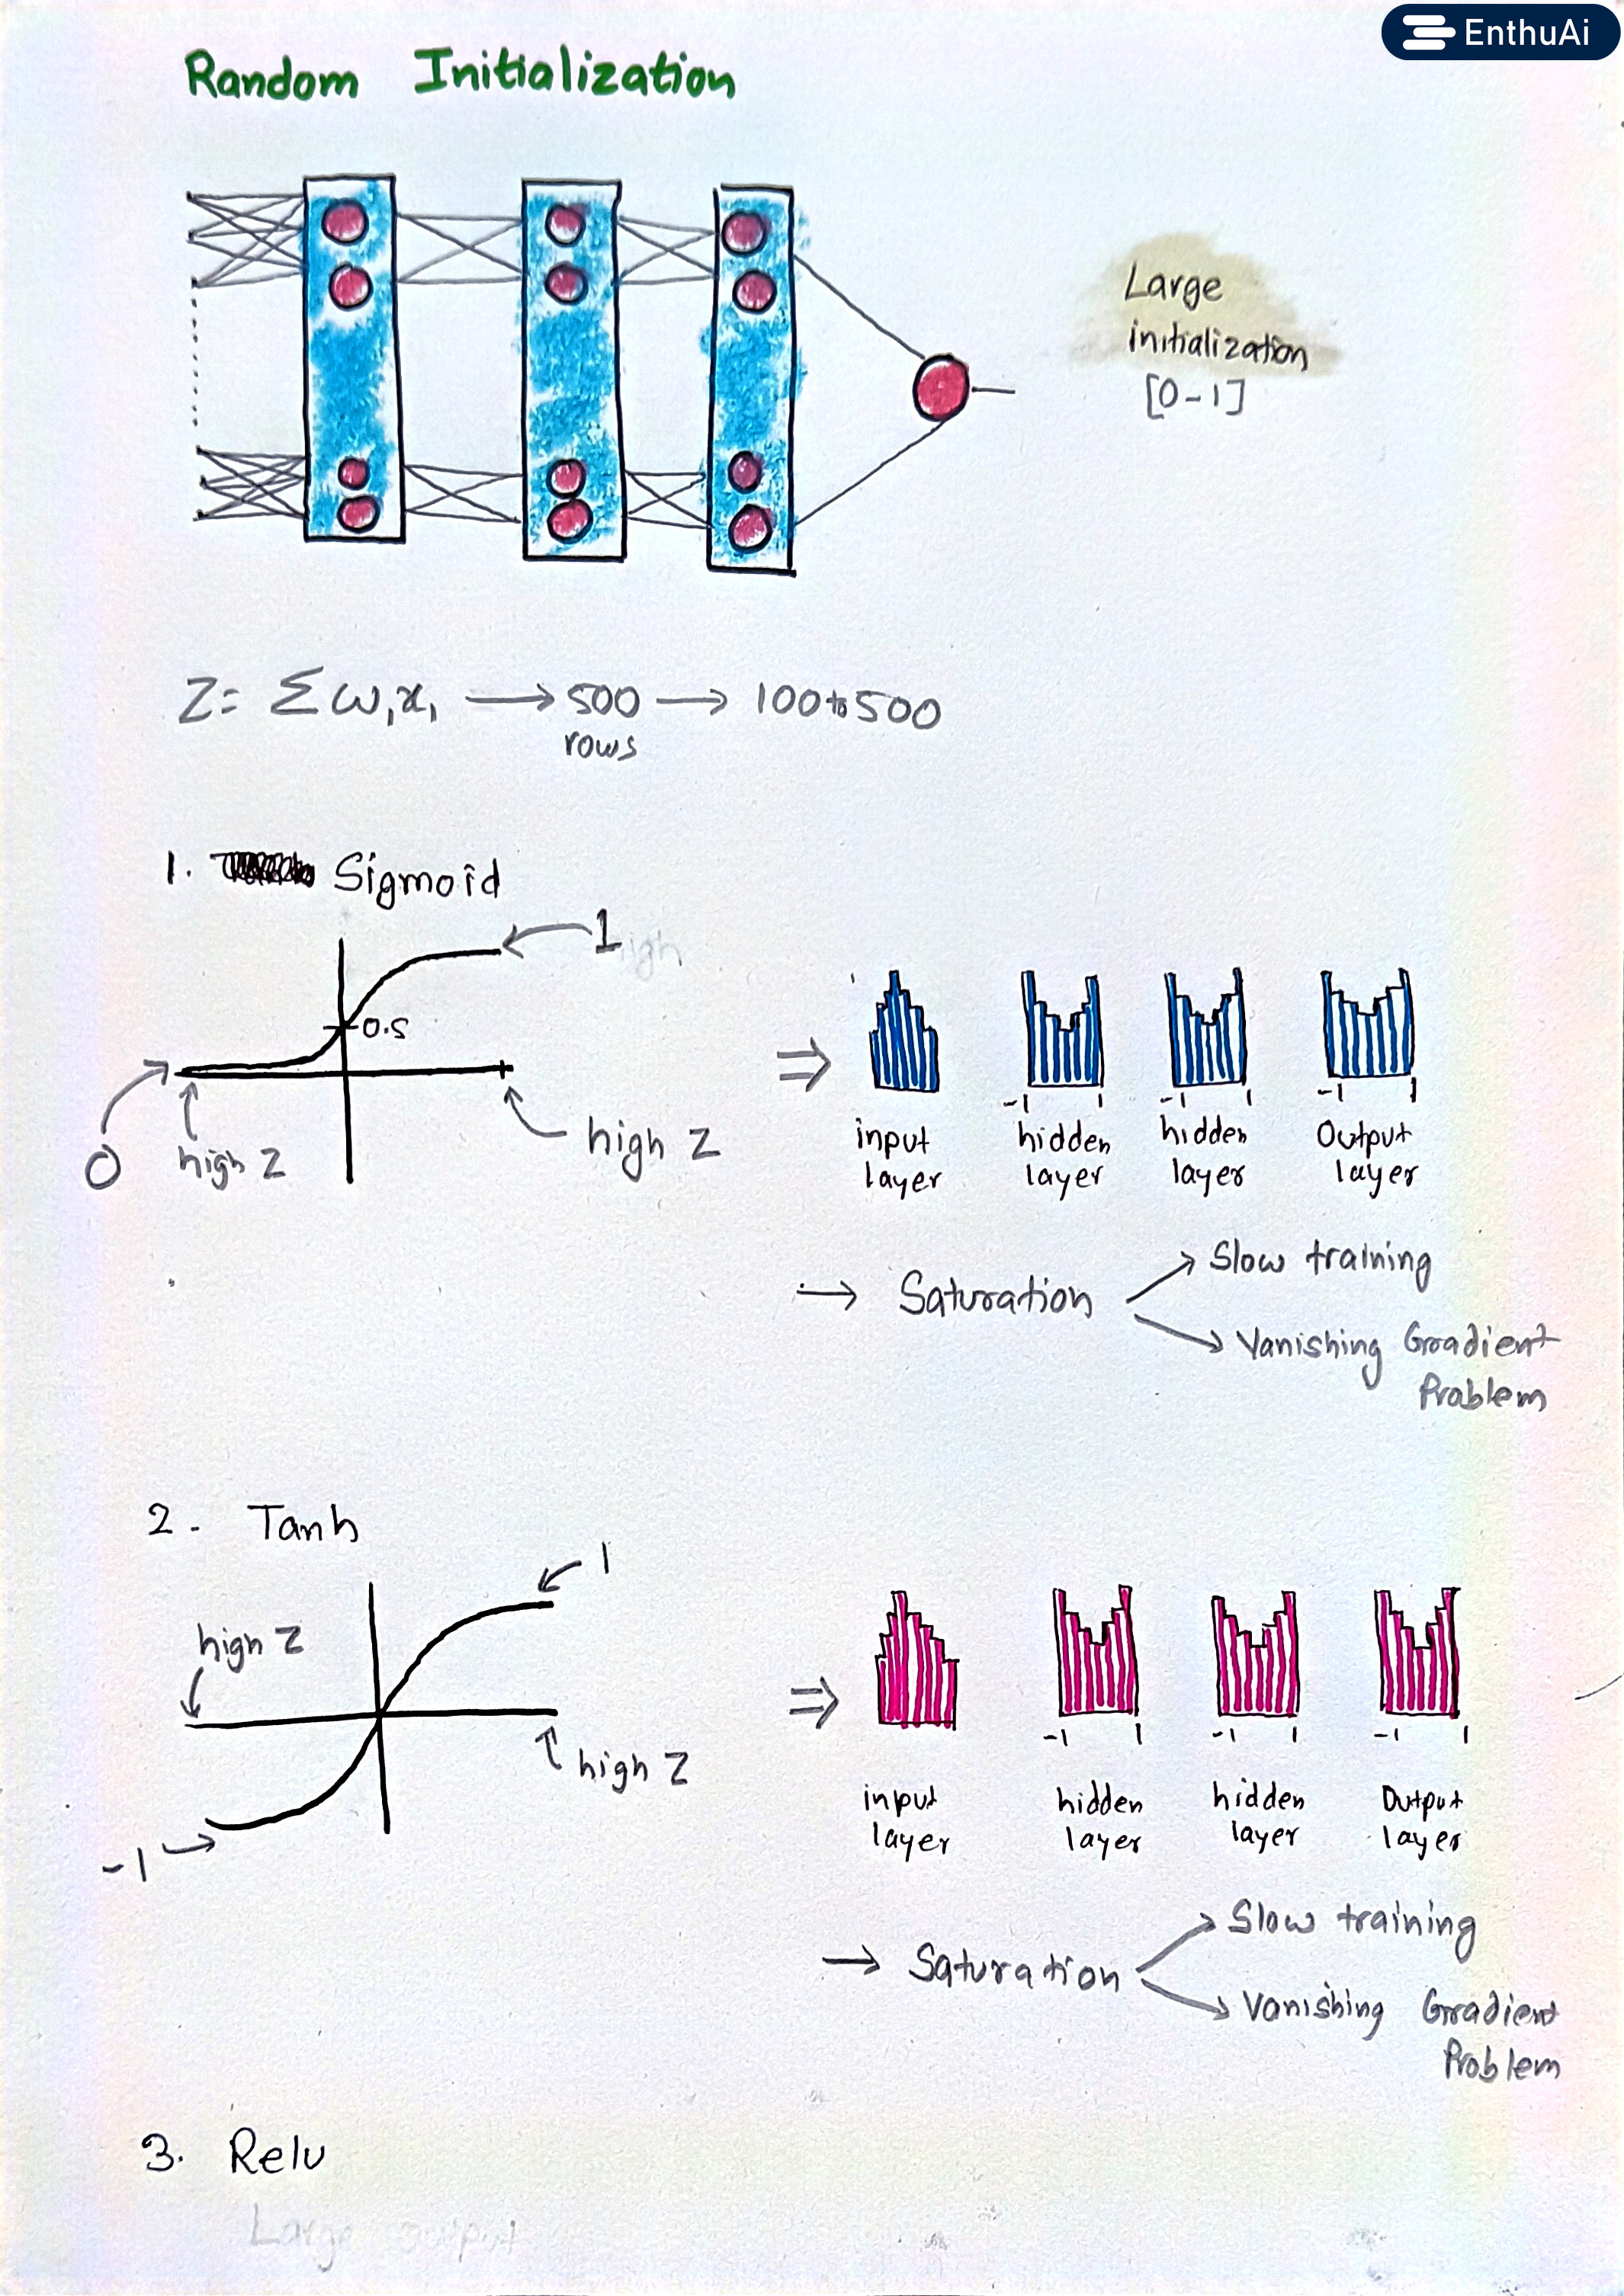 EnthuAi
Random Initialization
Large
initialization
[0-1]
Z= Σ ω₁x₁ → 500 → 100 to 500
rows
1. Sigmoid
1
0.5
0
high Z
high Z
⇒
input layer
-1 1
hidden layer
-1 1
hidden layer
-1 1
Output layer
→ Saturation
Slow training
Vanishing Gradient
Problem
2. Tanh
1
high Z
high Z
-1
⇒
input layer
-1 1
hidden layer
-1 1
hidden layer
-1 1
Output layer
→ Saturation
Slow training
Vanishing Gradient
Problem
3. Relu
Large output